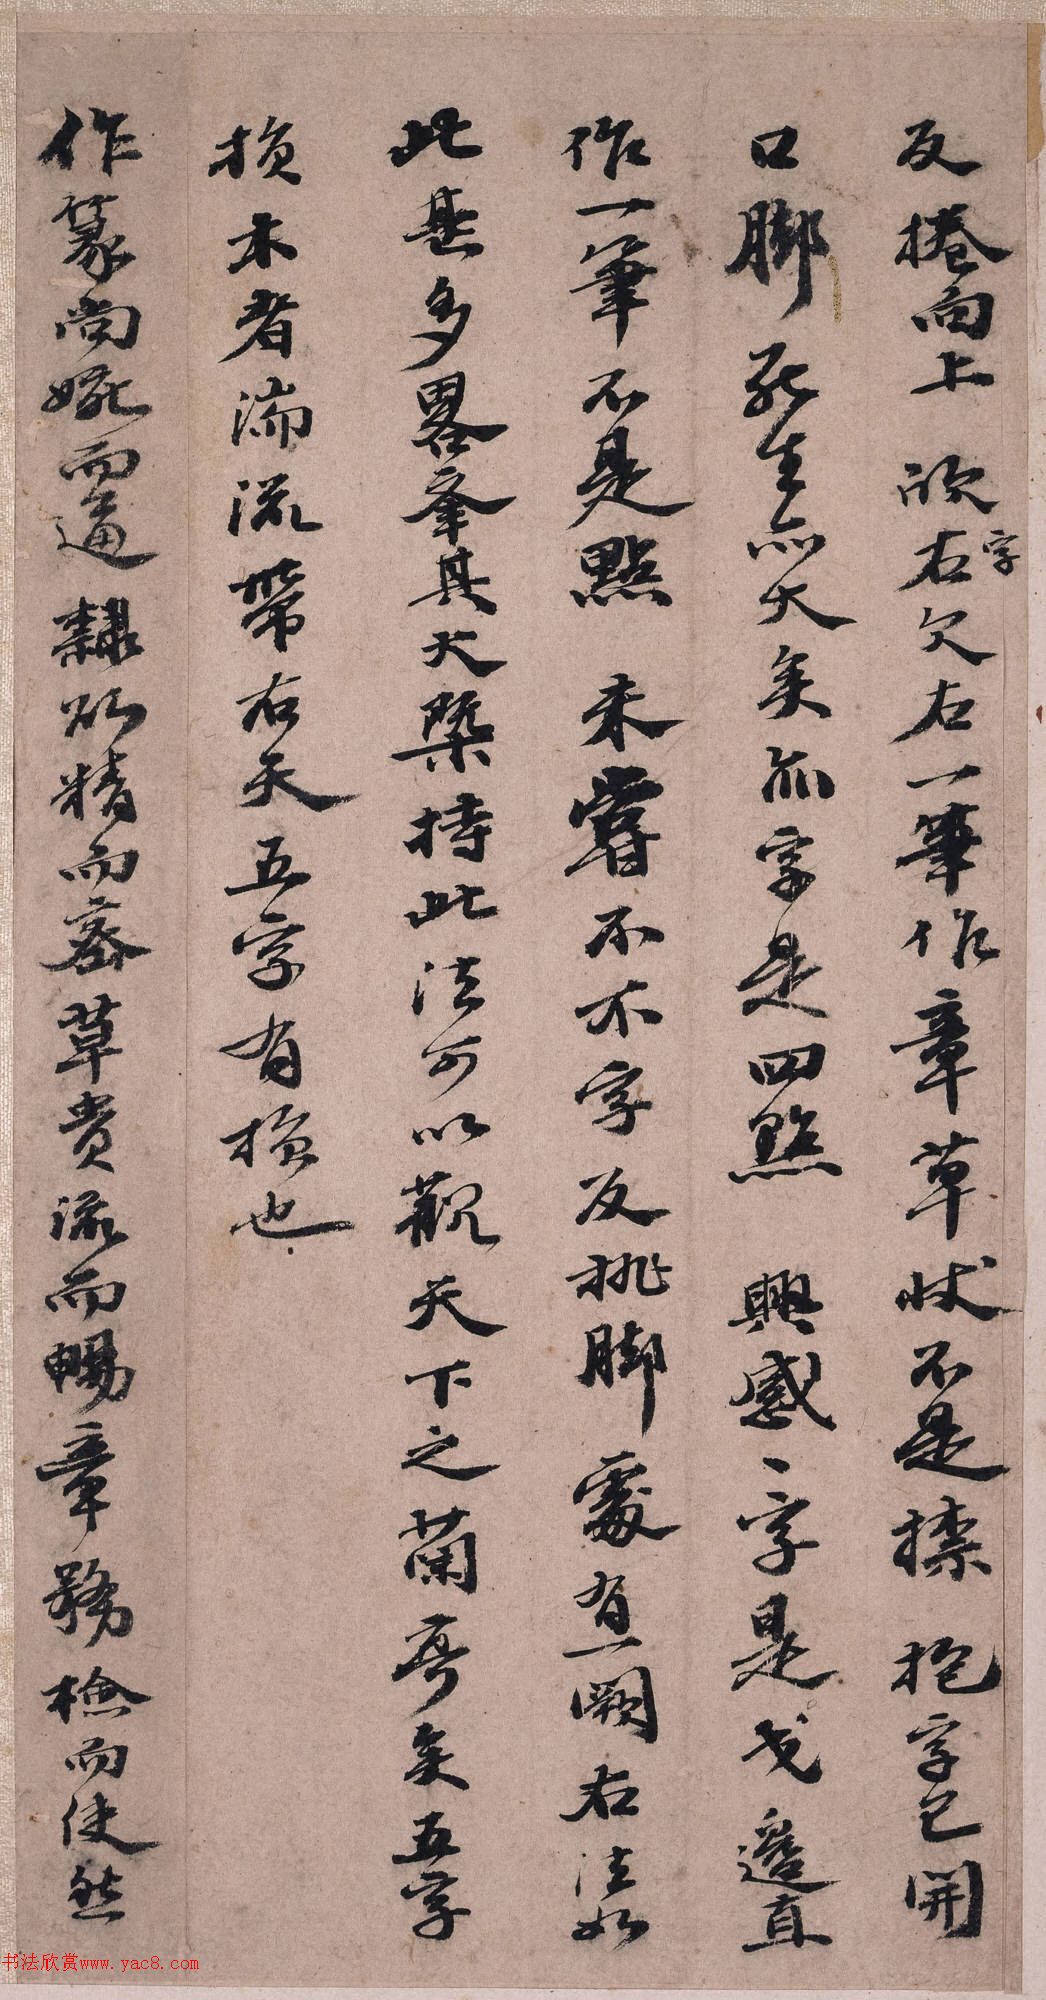 反捲向上 欣字右欠右一筆作章草狀不是捺 抱字已開
口脚 死生亦大矣亦字是四點 興感感字是戈邊直
作一筆不是點 未嘗不不字反挑脚處有一闕右法如
此甚多略舉其大槩持此法可以觀天下之蘭亭矣五字
損本者湍流帶右天五字有損也
作篆尚婉而通隸欲精而密草貴流而暢章務檢而使然
书法欣赏www.yac8.com